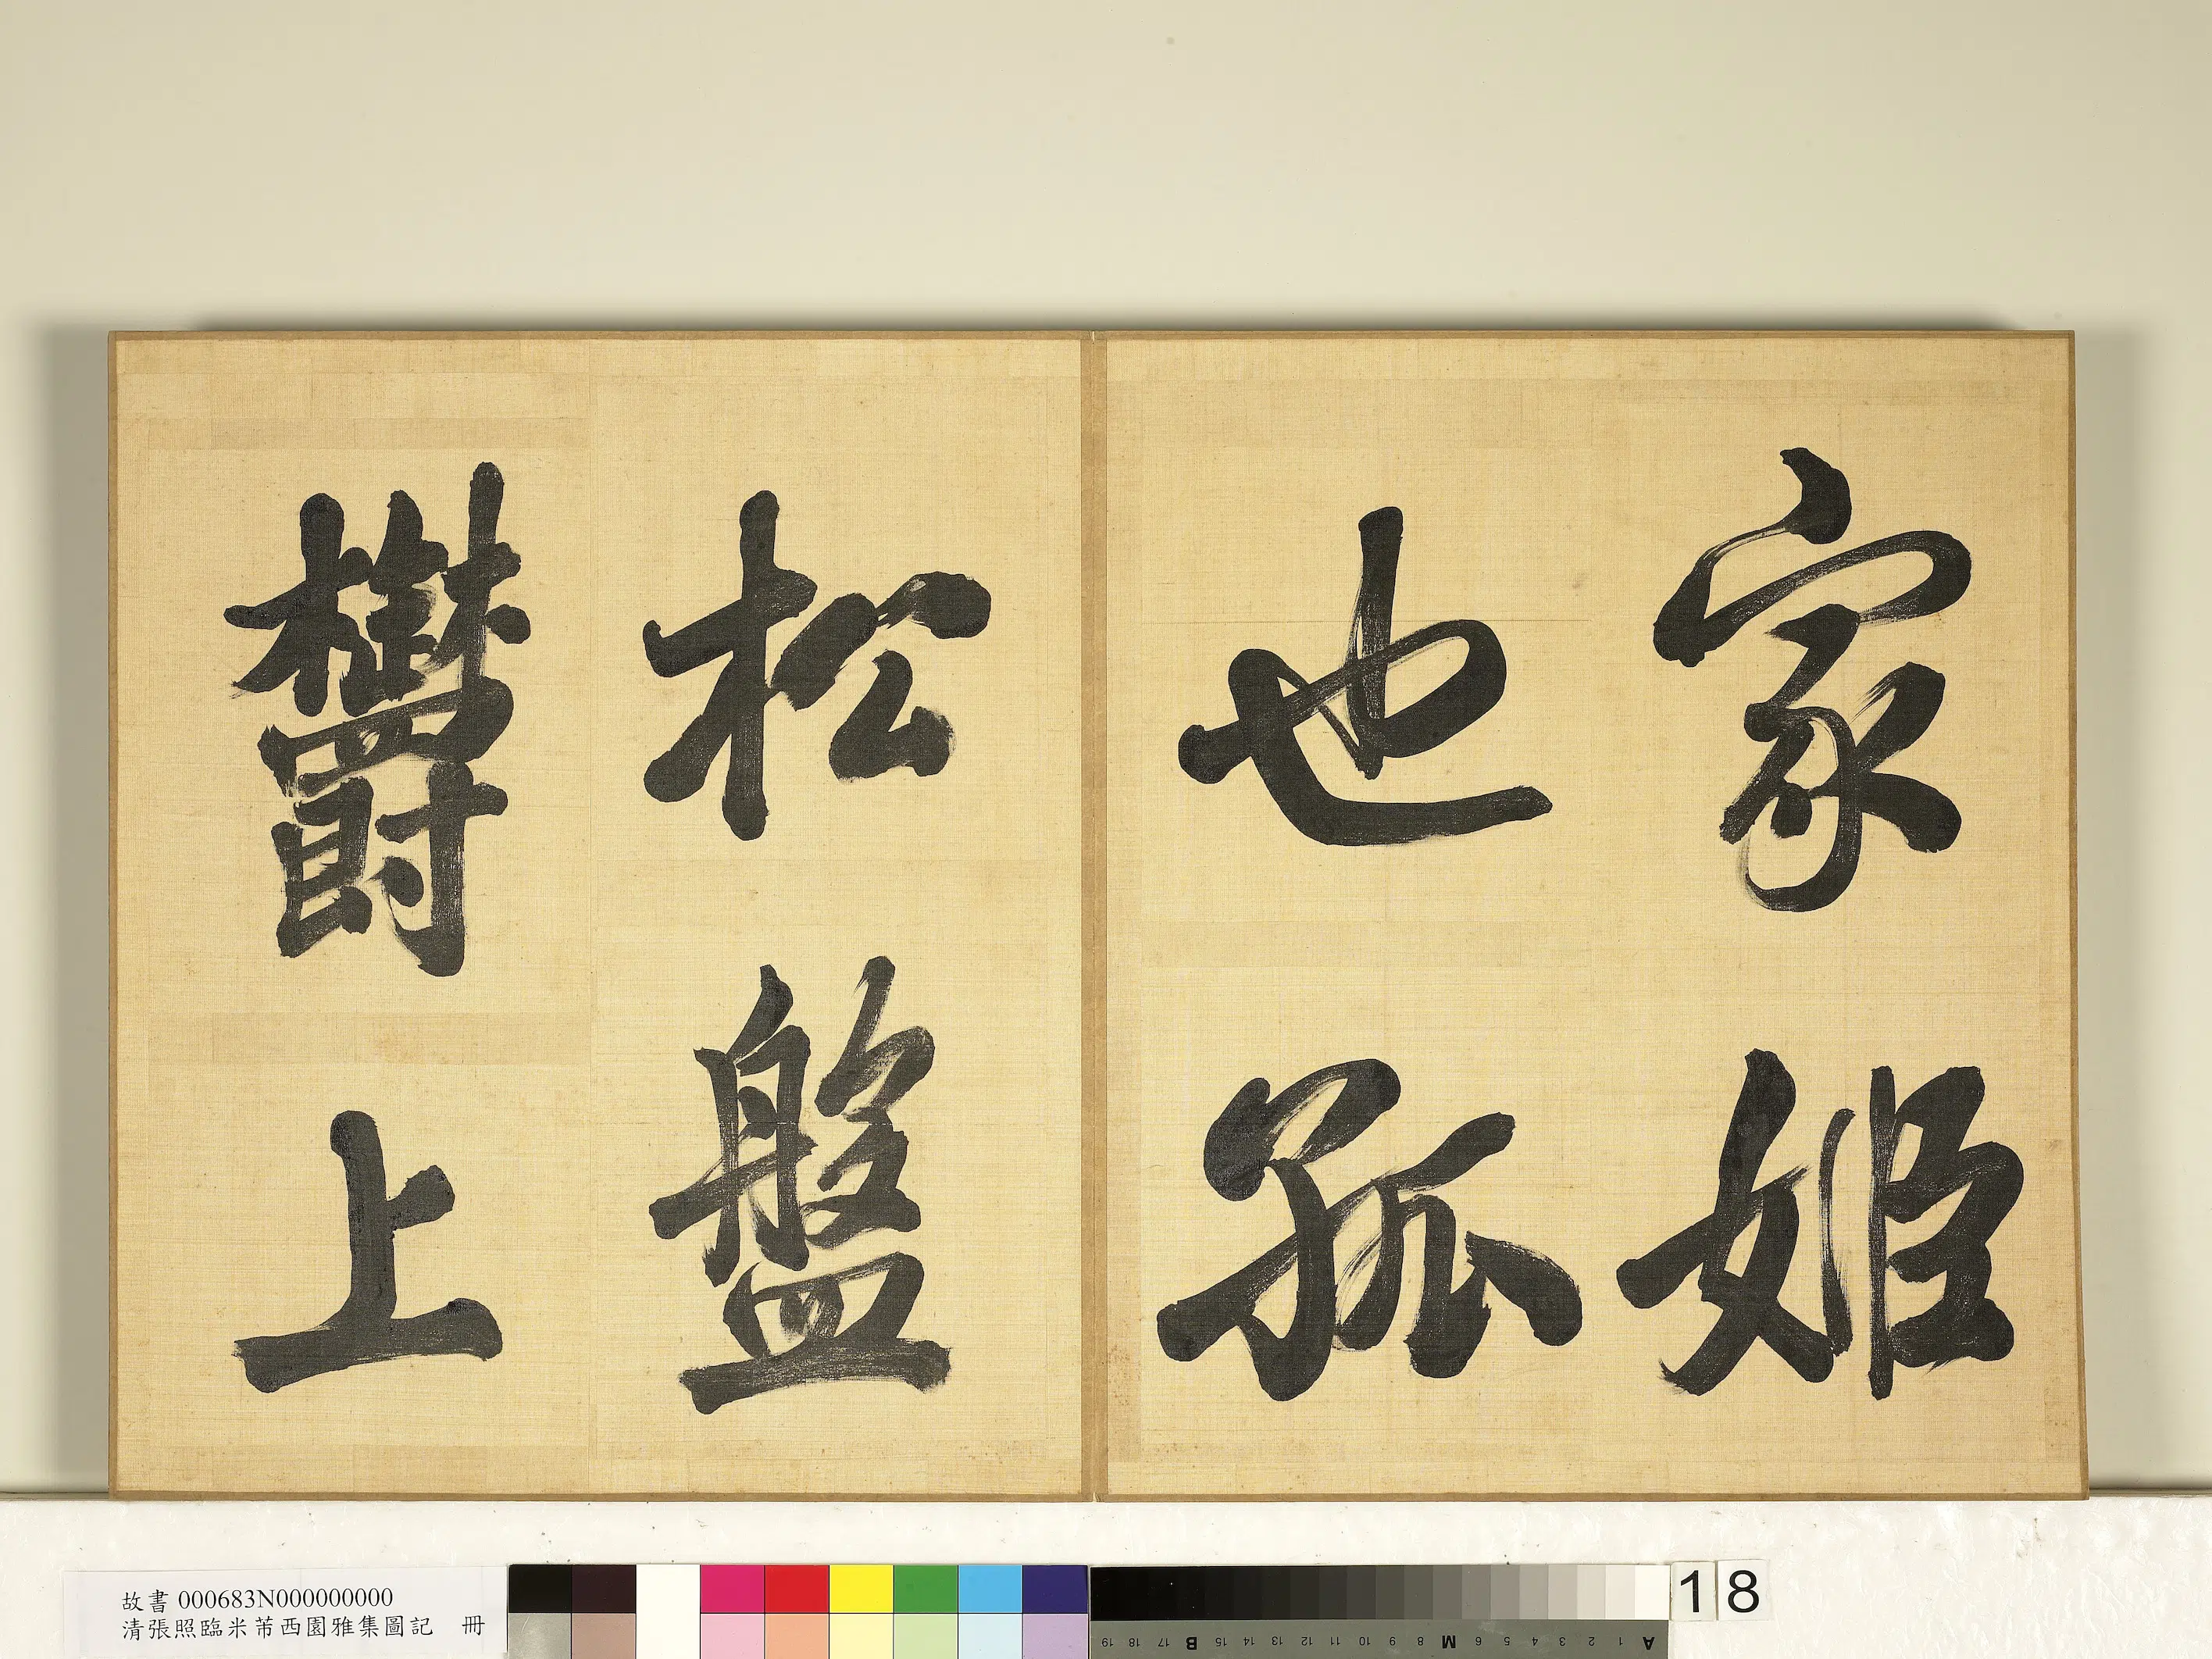 家姬
也孤
松盤
欝上
故書 000683N000000000
清張照臨米芾西園雅集圖記 冊
18
19 18 17 B 15 14 13 12 11 10 9 8 M 6 5 4 3 2 1 A